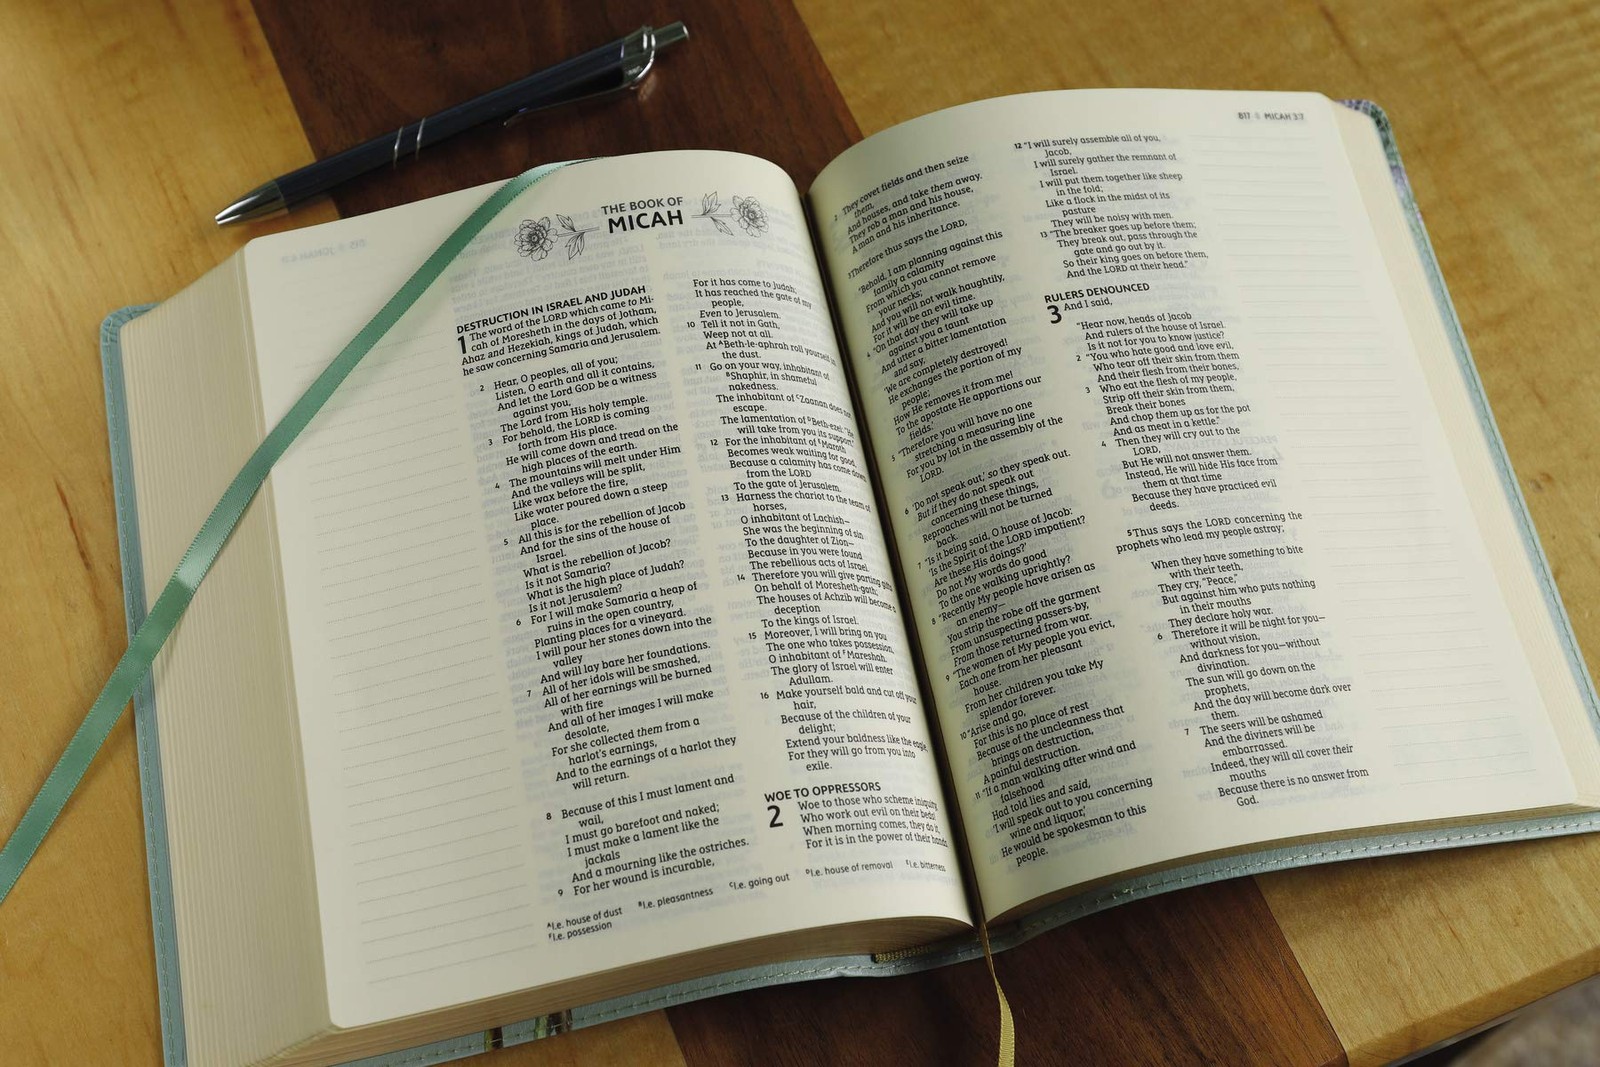 THE BOOK OF
MICAH
DESTRUCTION IN ISRAEL AND JUDAH
1 The word of the LORD which came to Mi-
cah of Moresheth in the days of Jotham,
Ahaz and Hezekiah, kings of Judah, which
he saw concerning Samaria and Jerusalem.
2 Hear, O peoples, all of you;
Listen, O earth and all it contains,
And let the Lord GOD be a witness
against you,
The Lord from His holy temple.
3 For behold, the LORD is coming
forth from His place.
He will come down and tread on the
high places of the earth.
4 The mountains will melt under Him
And the valleys will be split,
Like wax before the fire,
Like water poured down a steep
place.
5 All this is for the rebellion of Jacob
And for the sins of the house of
Israel.
What is the rebellion of Jacob?
Is it not Samaria?
What is the high place of Judah?
Is it not Jerusalem?
6 For I will make Samaria a heap of
ruins in the open country,
Planting places for a vineyard.
I will pour her stones down into the
valley
And will lay bare her foundations.
7 All of her idols will be smashed,
All of her earnings will be burned
with fire
And all of her images I will make
desolate,
For she collected them from a
harlot's earnings,
And to the earnings of a harlot they
will return.
8 Because of this I must lament and
wail,
I must go barefoot and naked;
I must make a lament like the
jackals
And a mourning like the ostriches.
9 For her wound is incurable,
For it has come to Judah;
It has reached the gate of my
people,
Even to Jerusalem.
10 Tell it not in Gath,
Weep not at all.
At ᴬBeth-le-aphrah roll yourself in
the dust.
11 Go on your way, inhabitant of
ᴮShaphir, in shameful
nakedness.
The inhabitant of ᶜZaanan does not
escape.
The lamentation of ᴰBeth-ezel: "He
will take from you its support."
12 For the inhabitant of ᴱMaroth
Becomes weak waiting for good,
Because a calamity has come down
from the LORD
To the gate of Jerusalem.
13 Harness the chariot to the team of
horses,
O inhabitant of Lachish—
She was the beginning of sin
To the daughter of Zion—
Because in you were found
The rebellious acts of Israel.
14 Therefore you will give parting gifts
On behalf of Moresheth-gath;
The houses of Achzib will become a
deception
To the kings of Israel.
15 Moreover, I will bring on you
The one who takes possession,
O inhabitant of ᶠMareshah.
The glory of Israel will enter
Adullam.
16 Make yourself bald and cut off your
hair,
Because of the children of your
delight;
Extend your baldness like the eagle,
For they will go from you into
exile.
WOE TO OPPRESSORS
2 Woe to those who scheme iniquity,
Who work out evil on their beds!
When morning comes, they do it,
For it is in the power of their hands.
ᴬI.e. house of dust ᴮI.e. pleasantness ᶜI.e. going out ᴰI.e. house of removal ᴱI.e. bitterness
ᶠI.e. possession
817 MICAH 3:7
2 They covet fields and then seize
them,
And houses, and take them away.
They rob a man and his house,
A man and his inheritance.
3 Therefore thus says the LORD,
"Behold, I am planning against this
family a calamity
From which you cannot remove
your necks;
And you will not walk haughtily,
For it will be an evil time.
4 "On that day they will take up
against you a taunt
And utter a bitter lamentation
and say,
'We are completely destroyed!
He exchanges the portion of my
people;
How He removes it from me!
To the apostate He apportions our
fields.'
5 "Therefore you will have no one
stretching a measuring line
For you by lot in the assembly of the
LORD.
6 'Do not speak out,' so they speak out.
But if they do not speak out
concerning these things,
Reproaches will not be turned
back.
7 "Is it being said, O house of Jacob:
'Is the Spirit of the LORD impatient?
Are these His doings?'
Do not My words do good
To the one walking uprightly?
8 "Recently My people have arisen as
an enemy—
You strip the robe off the garment
From unsuspecting passers-by,
From those returned from war.
9 "The women of My people you evict,
Each one from her pleasant
house.
From her children you take My
splendor forever.
10 "Arise and go,
For this is no place of rest
Because of the uncleanness that
brings on destruction,
A painful destruction.
11 "If a man walking after wind and
falsehood
Had told lies and said,
'I will speak out to you concerning
wine and liquor,'
He would be spokesman to this
people.
12 "I will surely assemble all of you,
Jacob,
I will surely gather the remnant of
Israel.
I will put them together like sheep
in the fold;
Like a flock in the midst of its
pasture
They will be noisy with men.
13 "The breaker goes up before them;
They break out, pass through the
gate and go out by it.
So their king goes on before them,
And the LORD at their head."
RULERS DENOUNCED
3 And I said,
"Hear now, heads of Jacob
And rulers of the house of Israel.
Is it not for you to know justice?
2 "You who hate good and love evil,
Who tear off their skin from them
And their flesh from their bones,
3 Who eat the flesh of my people,
Strip off their skin from them,
Break their bones
And chop them up as for the pot
And as meat in a kettle."
4 Then they will cry out to the
LORD,
But He will not answer them.
Instead, He will hide His face from
them at that time
Because they have practiced evil
deeds.
5 Thus says the LORD concerning the
prophets who lead my people astray;
When they have something to bite
with their teeth,
They cry, "Peace,"
But against him who puts nothing
in their mouths
They declare holy war.
6 Therefore it will be night for you—
without vision,
And darkness for you—without
divination.
The sun will go down on the
prophets,
And the day will become dark over
them.
7 The seers will be ashamed
And the diviners will be
embarrassed.
Indeed, they will all cover their
mouths
Because there is no answer from
God.